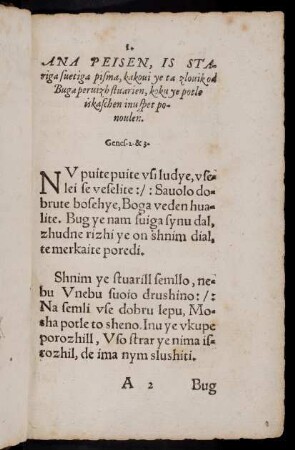 1.
ANA PEISEN, IS STA-
riga suetiga pisma, kakoui ye ta zlouik od
Buga peruizh stuarien, koku ye potle
iskashen inu spet po-
noulen.
Genes. 2. & 3.
NV puite puite vsi ludye, vse-
lei se veselite :/: Sauolo do-
brute boshye, Boga veden hua-
lite. Bug ye nam suiga synu dal,
zhudne rizhi ye on shnim dial,
te merkaite poredi.
Shnim ye stuarill semllo, ne-
bu Vnebu suoio drushino :/:
Na semli vse dobru lepu, Mo-
sha potle to sheno. Inu ye vkupe
porozhill, Vso strar ye nima is-
rozhil, de ima nym slushiti.
A 2 Bug